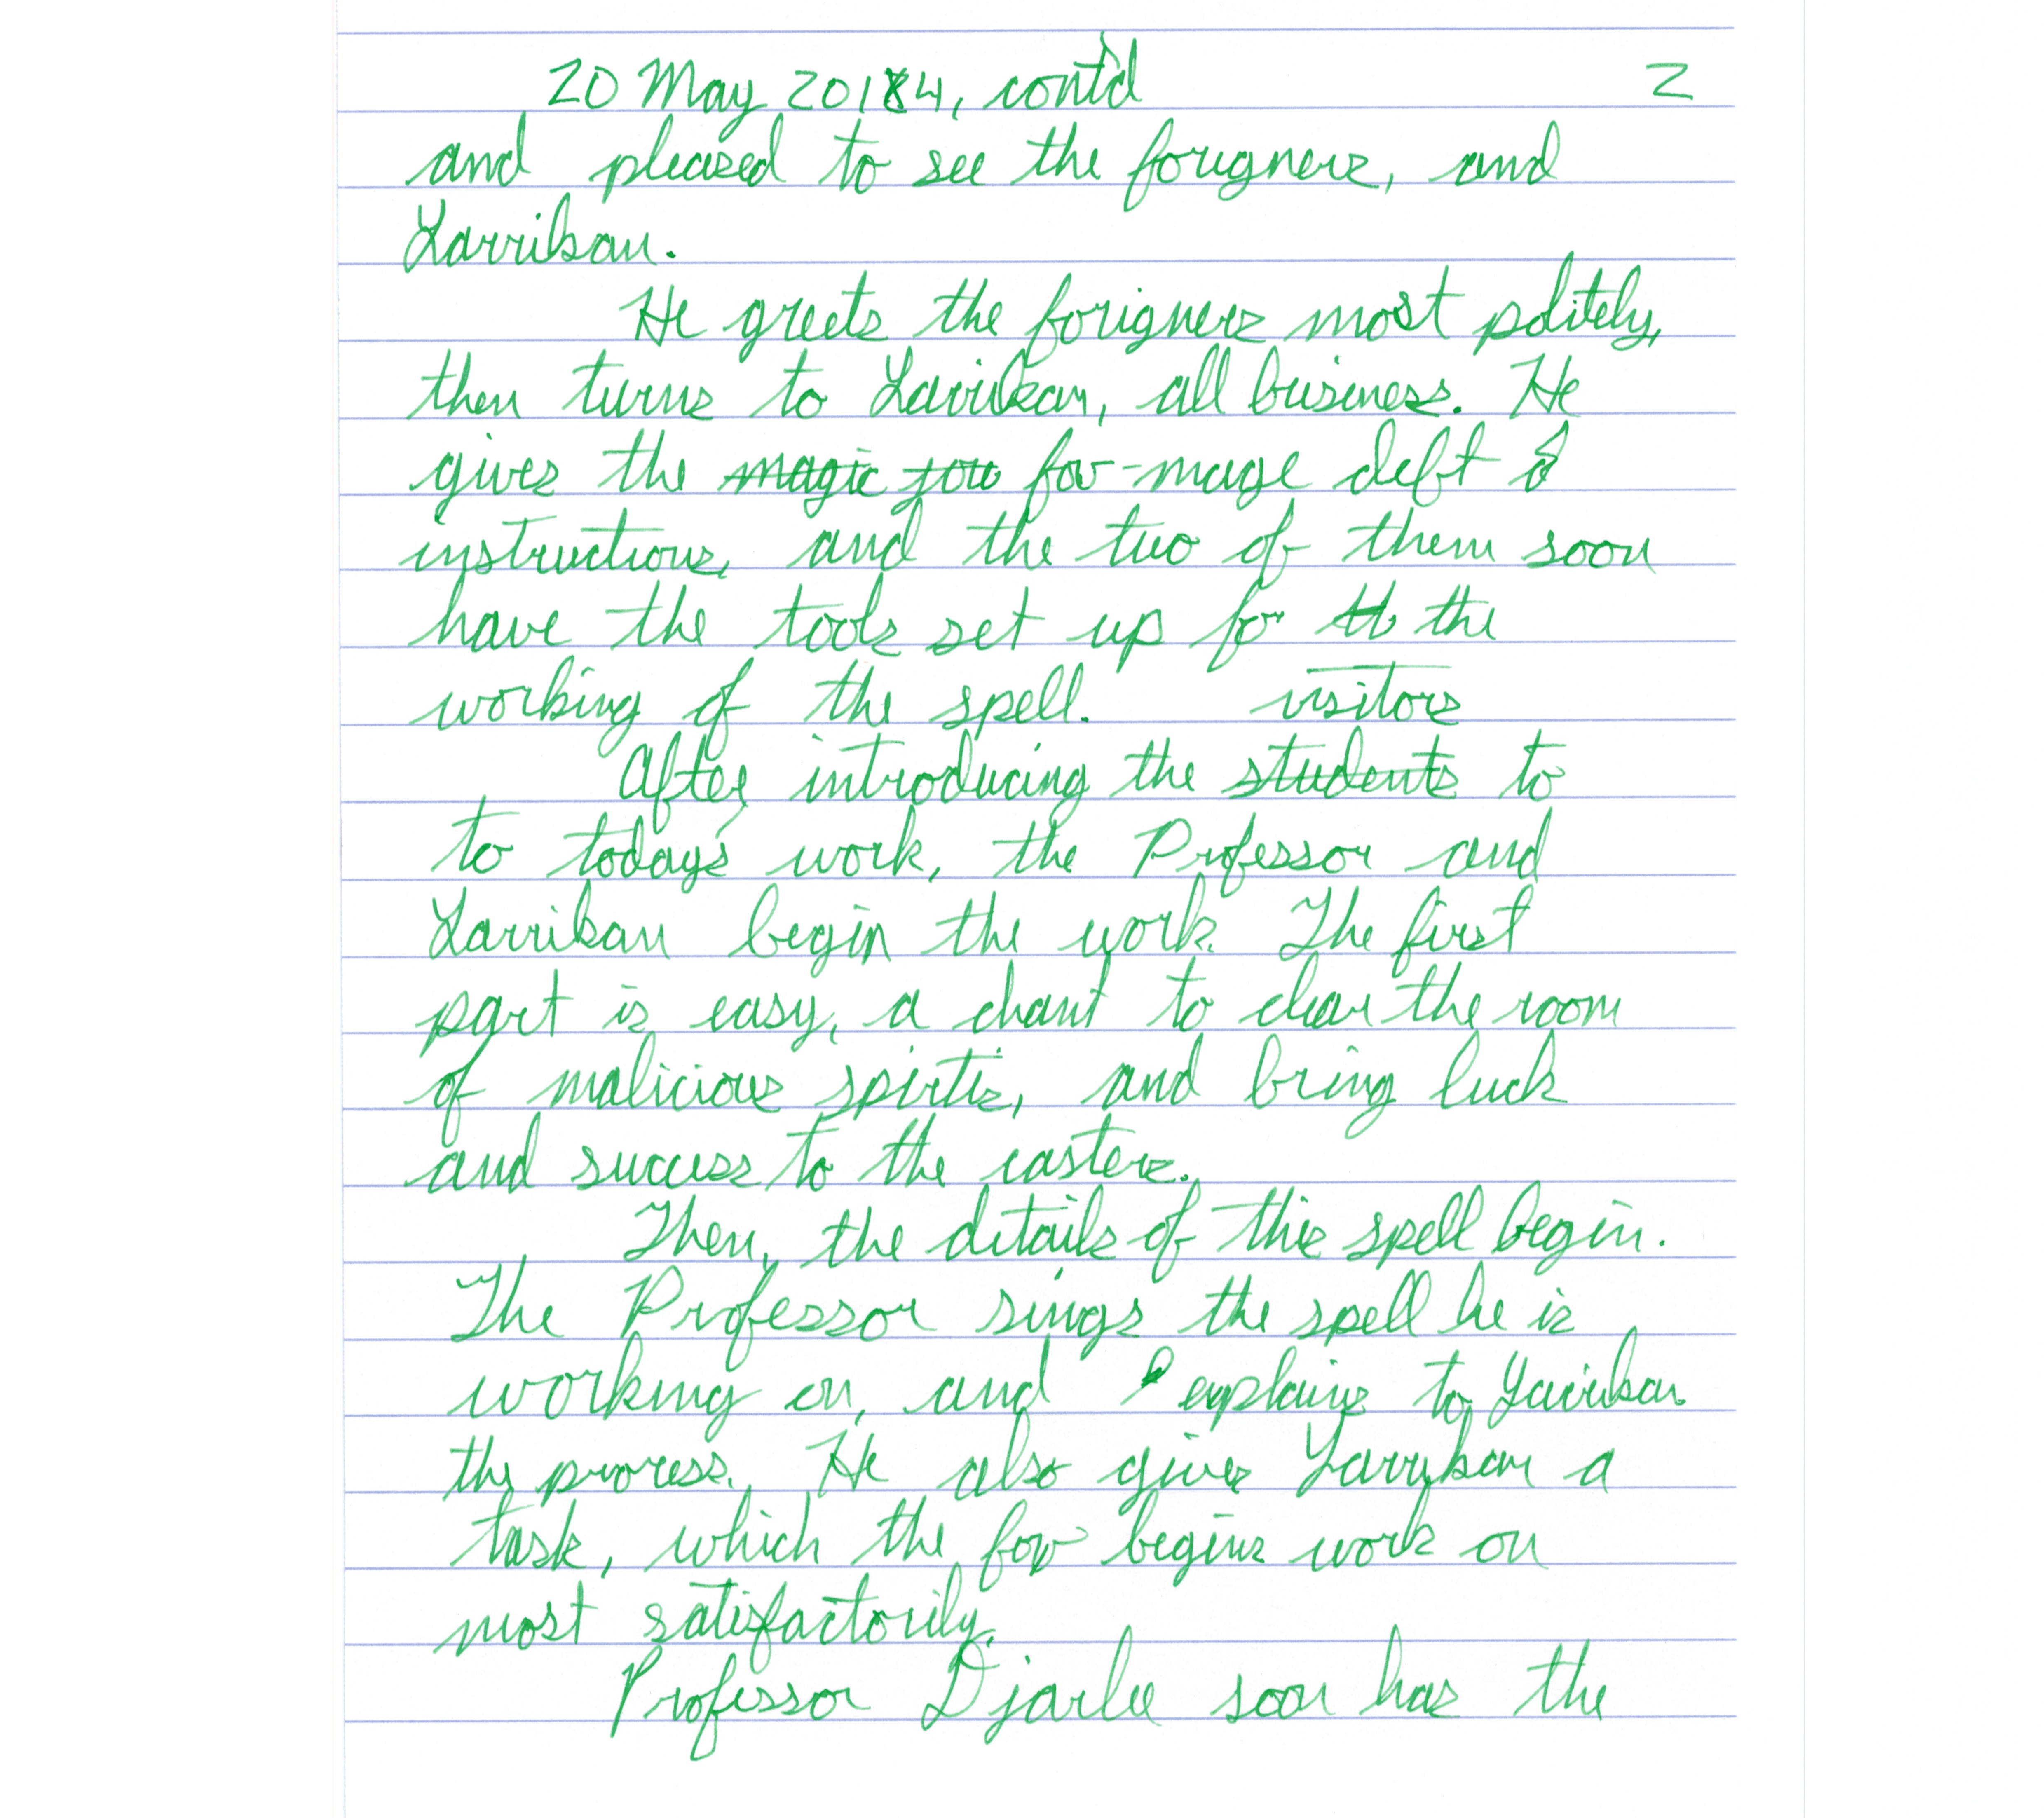 20 May 2014, cont'd 2
and pleased to see the foreigners, and
Larrikan.
He greets the foriegners most politely,
then turns to Larrikan, all business. He
gives the magic fou fox-mage deft &
instructions, and the two of them soon
have the tools set up for th the
working of the spell. visitors
After introducing the students to
to today's work, the Professor and
Larrikan begin the work. The first
part is easy, a chant to clear the room
of malicious spirtis, and bring luck
and success to the casters.
Then, the details of this spell begin.
The Professor sings the spell he is
working on, and explains to Larrikan
the process. He also gives Larrykan a
task, which the fox begins work on
most satisfactorily.
Professor Djarlee soon has the